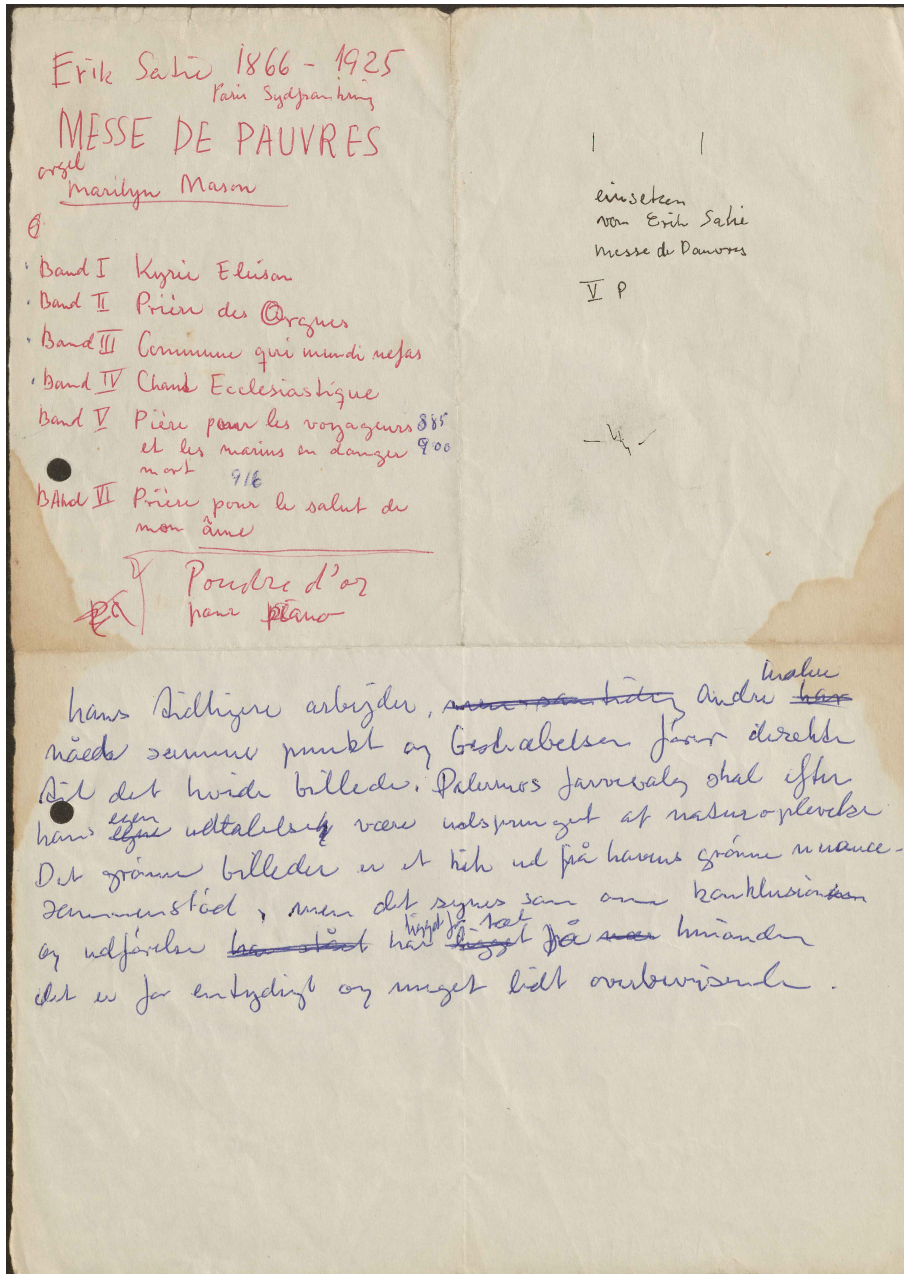 Erik Satie 1866 - 1925
Paris Sydfrankrig
MESSE DE PAUVRES
orgel
Marilyn Mason
Band I Kyrie Eleison
Band II Prière des Orgues
Band III Commune qui mundi nefas
Band IV Chant Ecclesiastique
Band V Pière pour les voyageurs 885
et les marins en danger 900
mort
916
BANd VI Prière pour le salut de
mon âme
Poudre d'or
pour piano
einsetzen
von Erik Satie
Messe de Pauvres
V P
hans tidligere arbejder, andre malere
nåede samme punkt og bestræbelsen fører direkte
til det hvide billede. Palermos farvevalg skal efter
hans egen udtalelse være udsprunget af naturoplevelse
Det grønne billeder er et kik ud på havens grønne nuance-
sammenstød, men det synes som om konklusion
og udførelse har ligget for tæt på hinanden
det er for entydigt og meget lidt overbevisende.